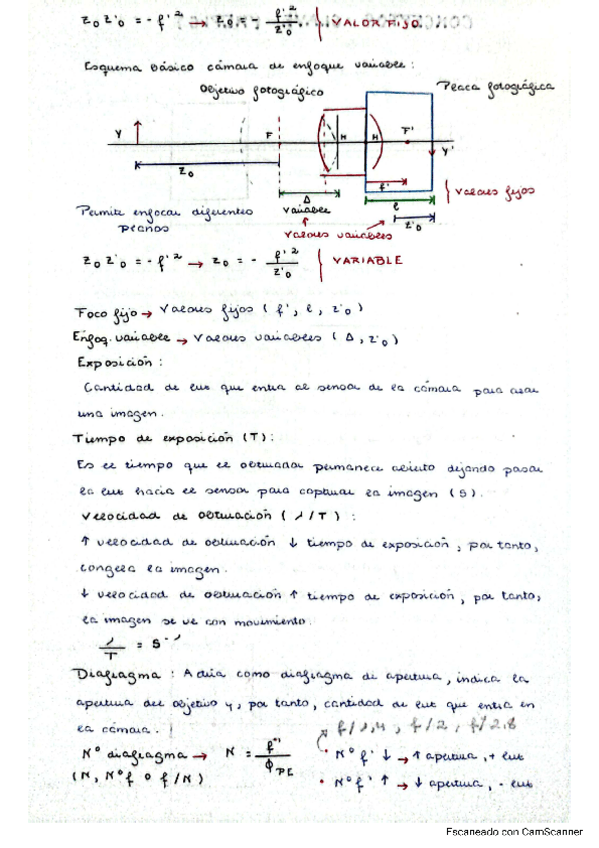 Z₀ Z'₀ = - f'² → Z₀ = - f'²/Z'₀ } VALOR FIJO
Esquema básico cámara de enfoque variable:
Objetivo fotográfico Placa fotográfica
Y F H H F' Y'
Z₀ f'
Δ ℓ } Valores fijos
Permite enfocar diferentes variable Z'₀
planos valores variables
Z₀ Z'₀ = - f'² → Z₀ = - f'²/Z'₀ } VARIABLE
Foco fijo → Valores fijos (f', ℓ, Z'₀)
Enfoq. variable → Valores variables (Δ, Z'₀)
Exposición:
Cantidad de luz que entra al sensor de la cámara para crear
una imagen.
Tiempo de exposición (T):
Es el tiempo que el obturador permanece abierto dejando pasar
la luz hacia el sensor para capturar la imagen (s).
Velocidad de obturación (1/T):
↑ velocidad de obturación ↓ tiempo de exposición, por tanto,
congela la imagen.
↓ velocidad de obturación ↑ tiempo de exposición, por tanto,
la imagen se ve con movimiento.
1/T = s⁻¹
Diafragma: Actúa como diafragma de apertura, indica la
apertura del objetivo y, por tanto, cantidad de luz que entra en
la cámara. f/1,4, f/2, f/2.8
Nº diafragma → N = f'/Φ PE • Nº f' ↓ → ↑ apertura, + luz
(N, Nºf o f/N) • Nº f' ↑ → ↓ apertura, - luz
Escaneado con CamScanner